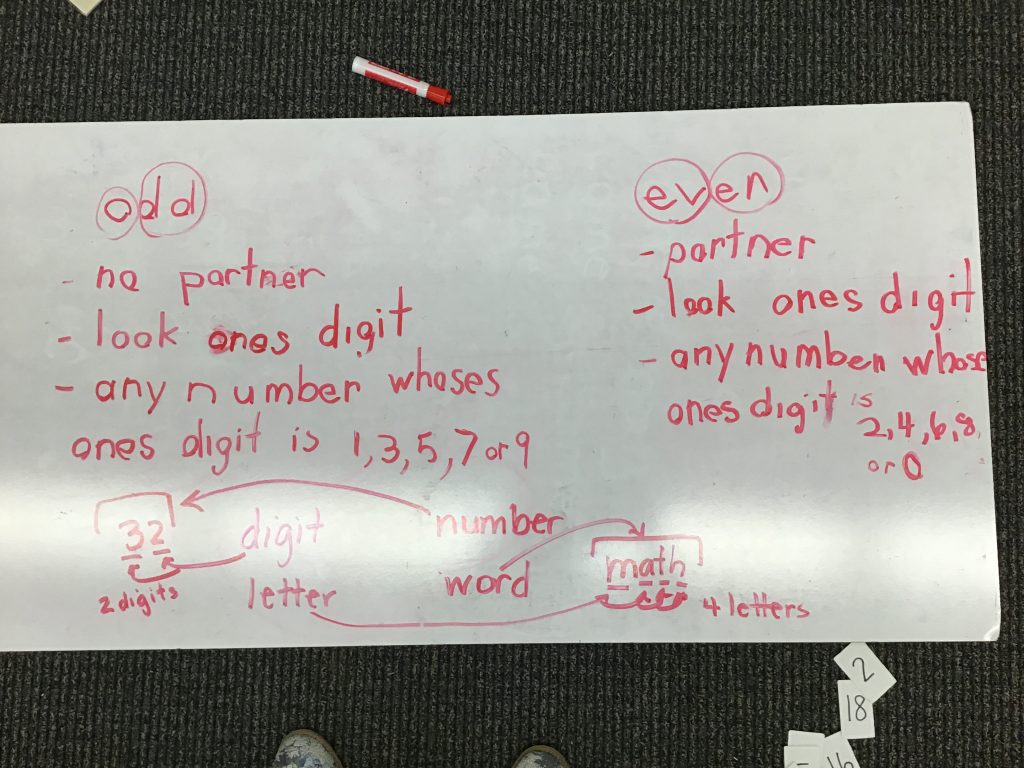 odd
- no partner
- look ones digit
- any number whoses
ones digit is 1,3,5,7 or 9
even
- partner
- look ones digit
- any number whose
ones digit is
2,4,6,8,
or 0
32
2 digits
digit
letter
number
word
math
4 letters
2
18